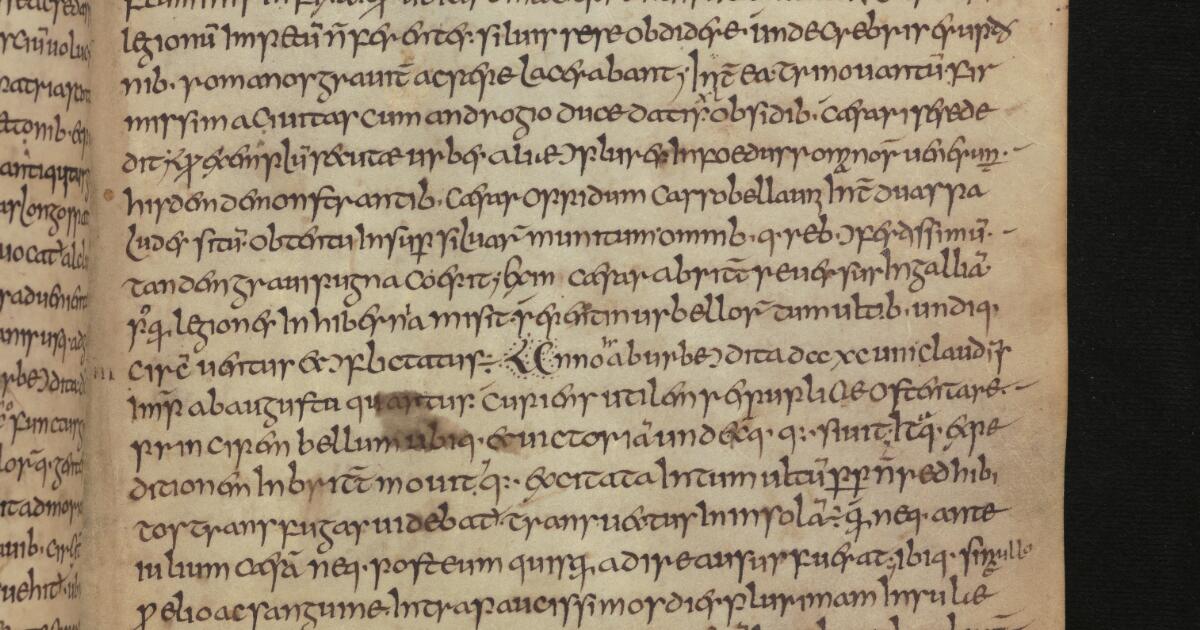 legionū impetū ñ ferentes siluis sese obdidere. unde crebris erupti
nib. romanos grauit̄ ac sepe lacerabant; Int̄ ea trinouantū fir
missima ciuitas cum androgio duce datis obsidib. cesari sese de
dit; exemplū secutæ urbes aliæ plures in foedus romanor̄ uenerun̄
hisdem demonstrantib. cesar oppidum cassobellaun int̄ duas pa
ludes sitū. obtentu insup siluar̄ munitum omnib. q. reb. ɔfertissimū.
tandem graui pugna cœpit; exin cesar a britt̄ reuersus in galliā
posq̄. legiones in hiberna misit. repentinus bellor̄ tumultib. undiq.
circ̄ uentus et ɔflictatus: Anno ab urbe ɔdita dcc xc uiii claudiꝰ
imp̄ ab augusto quartus. cupiens utilem rei puplicæ ostentare
principem bellum ubiq. et uictoriā undecūq. q̄siuit. Itaq. expe
ditionem in britt̄ mouit. q̄ excitata in tumultū pp̄ ñ redhibi
tos transfugas uidebat̄. transuectus in insolā. q̄. neq. ante
iulium cesarē neq. post eum quisq̄. adire ausus fuerat. ibiq. sine ullo
p̄elio ac sanguine. intra paucissimos dies plurimam insulæ